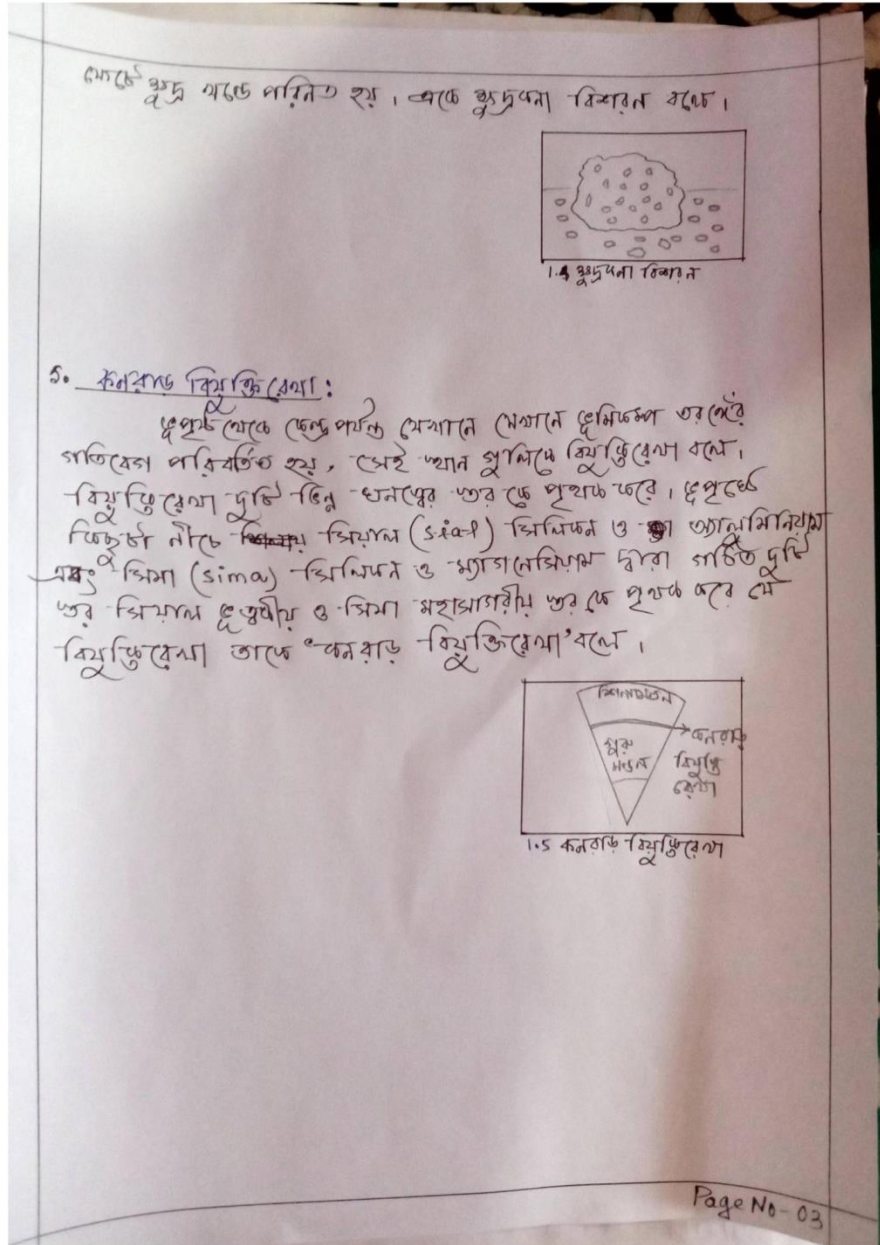 ফেটে ক্ষুদ্র খন্ডে পরিনত হয়। একে ক্ষুদ্রকনা বিশরন বলে।
1.4 ক্ষুদ্রকনা বিশরন
5. কনরাড বিযুক্তিরেখা:
ভূপৃষ্ঠ থেকে কেন্দ্র পর্যন্ত যেখানে সেখানে ভূমিকম্প তরঙ্গের
গতিবেগ পরিবর্তিত হয়, সেই স্থান গুলিকে বিযুক্তিরেখা বলে।
বিযুক্তিরেখা দুটি ভিন্ন ঘনত্বের স্তর কে পৃথক করে। ভূপৃষ্ঠে
কিছুটা নীচে সিয়াল (sial) সিলিকন ও অ্যালুমিনিয়াম
এবং সিমা (sima) সিলিকন ও ম্যাগনেসিয়াম দ্বারা গঠিত দুটি
স্তর সিয়াল ভূত্বকীয় ও সিমা মহাসাগরীয় স্তর কে পৃথক করে যে
বিযুক্তিরেখা তাকে 'কনরাড় বিযুক্তিরেখা' বলে।
শিলামন্ডল
গুরু
মন্ডল
কনরাড়
বিযুক্তি
রেখা
1.5 কনরাড় বিযুক্তিরেখা
Page No - 03